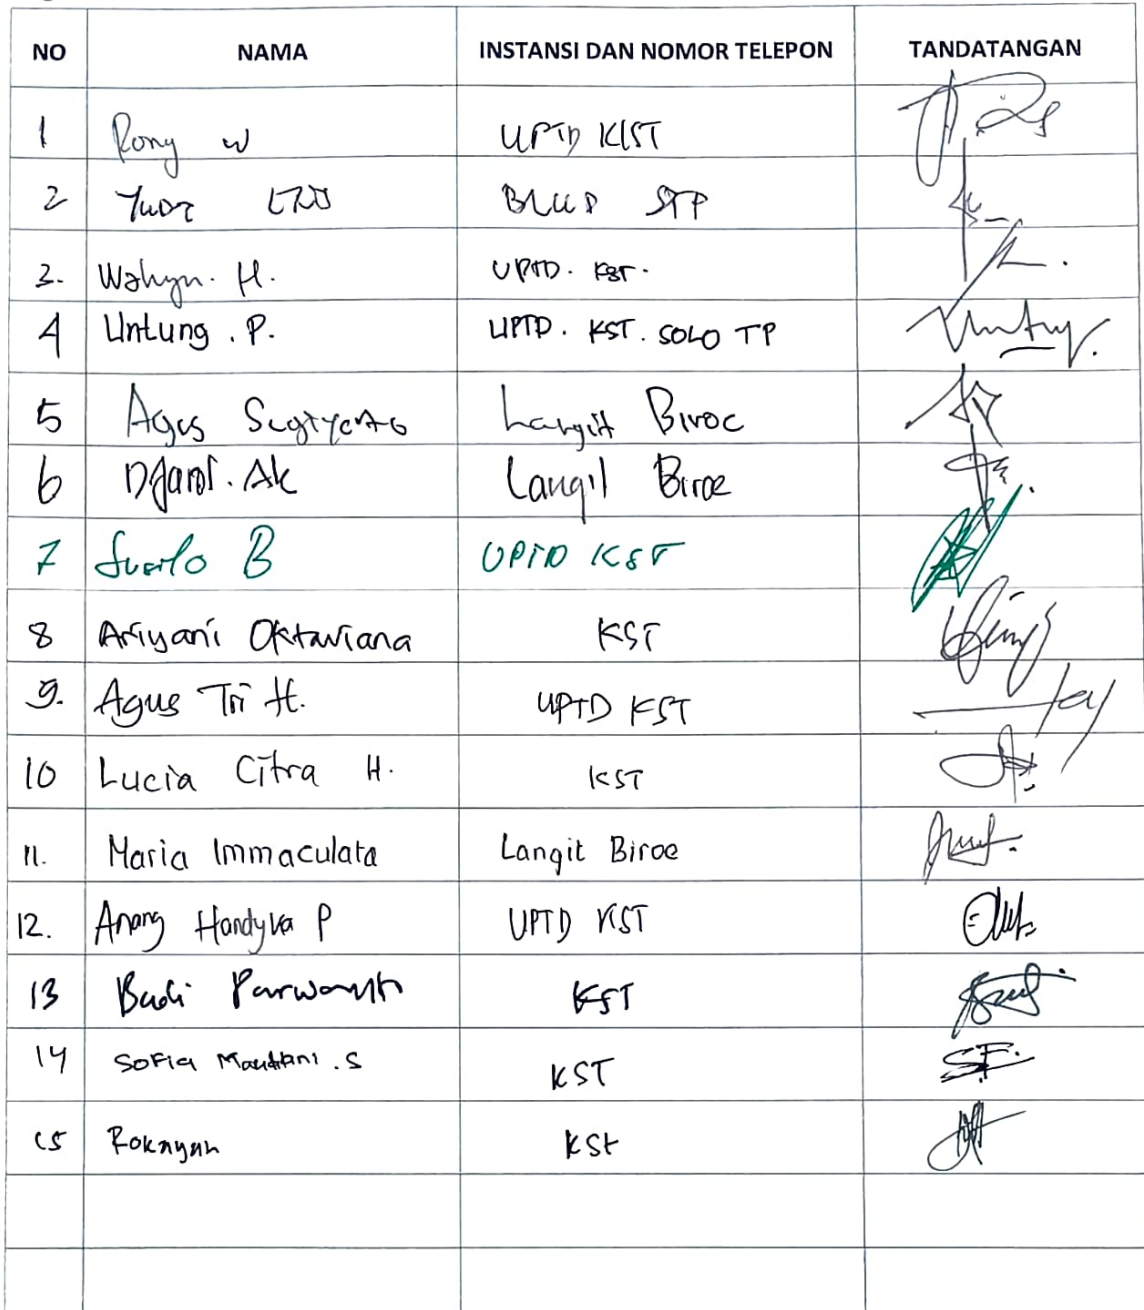 NO NAMA INSTANSI DAN NOMOR TELEPON TANDATANGAN
1 Rony W UPTD KST
2 STP
3. Wahyu. H. UPTD. KST.
4 Untung. P. UPTD. KST. SOLO TP
5 Agus Sugiyarto Langit Biroe
6 Langit Biroe
7 B UPTD KST
8 Ariyani Oktaviana KST
9. Agus Tri H. UPTD KST
10 Lucia Citra H. KST
11. Maria Immaculata Langit Biroe
12. Anang Handyka P UPTD KST
13 Budi Purwanto KST
14 Sofia .S KST
15 Rokayah KST